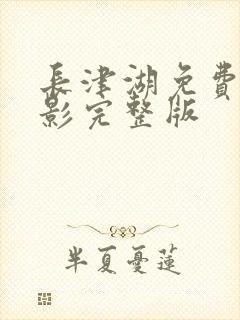 長津湖免費
影完整版
半夏憂蓮